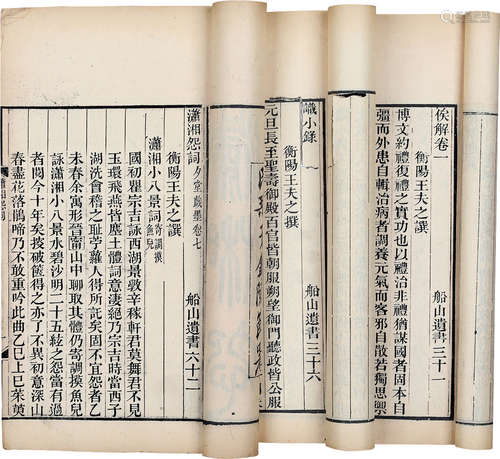 俟解卷一
船山遺書三十一
衡陽王夫之譔
博文約禮復禮之實功也以禮治非禮猶謀國者固本自
彊而外患自輯治病者調養元氣而客邪自散若獨思禦
識小錄
船山遺書三十六
衡陽王夫之撰
元旦長至聖壽御殿百官皆朝服朔望御門聽政皆公服
瀟湘怨詞
夕堂戲墨卷七
船山遺書六十二
衡陽王夫之譔
瀟湘小八景詞
寄調摸魚兒
國初瞿宗吉詠西湖景效辛稼軒君莫舞君不見
玉環飛燕皆塵土體詞意淒絕乃宗吉時當西子
湖洗會稽之恥苧蘿人得所矣固不宜怨者乙
未春余寓形晉甯山中聊取其體仍寄調摸魚兒
詠瀟湘小八景水碧沙明二十五絃之怨當有過
者閱今十年矣披破篋得之亦了不異初意深山
春盡花落鵑啼乃不敢重吟此曲乙巳上巳茱萸